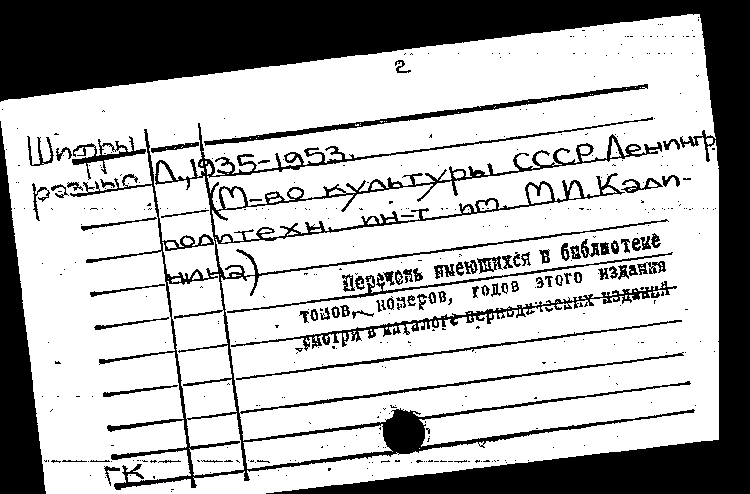 2
Шифры
разные
Л., 1935-1953.
(М-во культуры СССР. Ленингр
политехн. ин-т им. М.И. Кали-
нина)
Перечень имеющихся в библиотеке
томов, номеров, годов этого издания
смотри в каталоге периодических изданий
ГК.